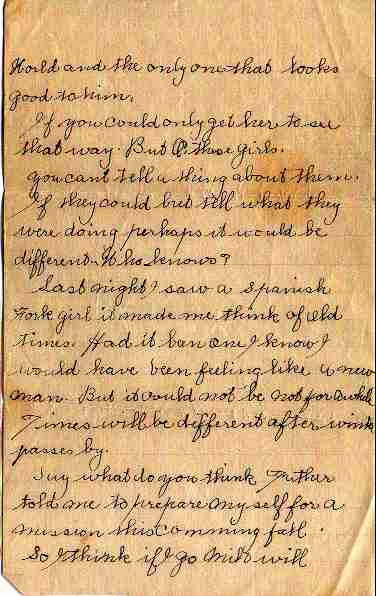 World and the only one that looks
good to him.
If you could only get her to see
that way. But O those girls.
you cant tell a thing about them.
If they could but tell what they
were doing perhaps it would be
different. Who knows?
Last night I saw a Spanish
Fork girl it made me think of old
times. Had it ban one I know I
would have been feeling like a new
man. But it could not be not for awhile
Times will be different after
passes by.
Say what do you think Father
told me to prepare myself for a
mission this comming fall.
So I think if I go will